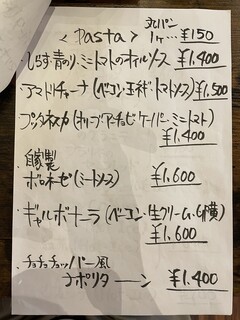 <Pasta> 丸パン
1ヶ… ¥150
・しらす・青のり・ミニトマトのオイルソース ¥1,400
・アマトリチャーナ(ベーコン・玉ネギ・トマトソース) ¥1,500
・プッタネスカ(オリーブ・アンチョビ・ケーパー・ミニトマト)
¥1,400
自家製
ボロネーゼ(ミートソース) ¥1,600
・ギャルボナーラ(ベーコン・生クリーム・
¥1,600
・チョチョチョッパー風
ナポリターーン ¥1,400